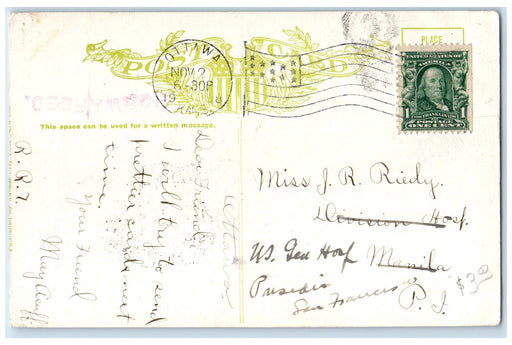 POST CARD
PLACE
OTTAWA
NOV 2
6-30P
19 8
KANS.
UNITED STATES OF AMERICA
FRANKLIN
POSTAGE
ONE CENT
FORWARDED.
This space can be used for a written message.
Ottawa.
Dear Friend:
I will try to send
prettier cards next
time.
Your Friend
May
R.R.2.
Miss J. R. Riedy.
Division Hosp.
US. Gen Hosp Manila
Presidio P. I.
San Francisco
$3.00